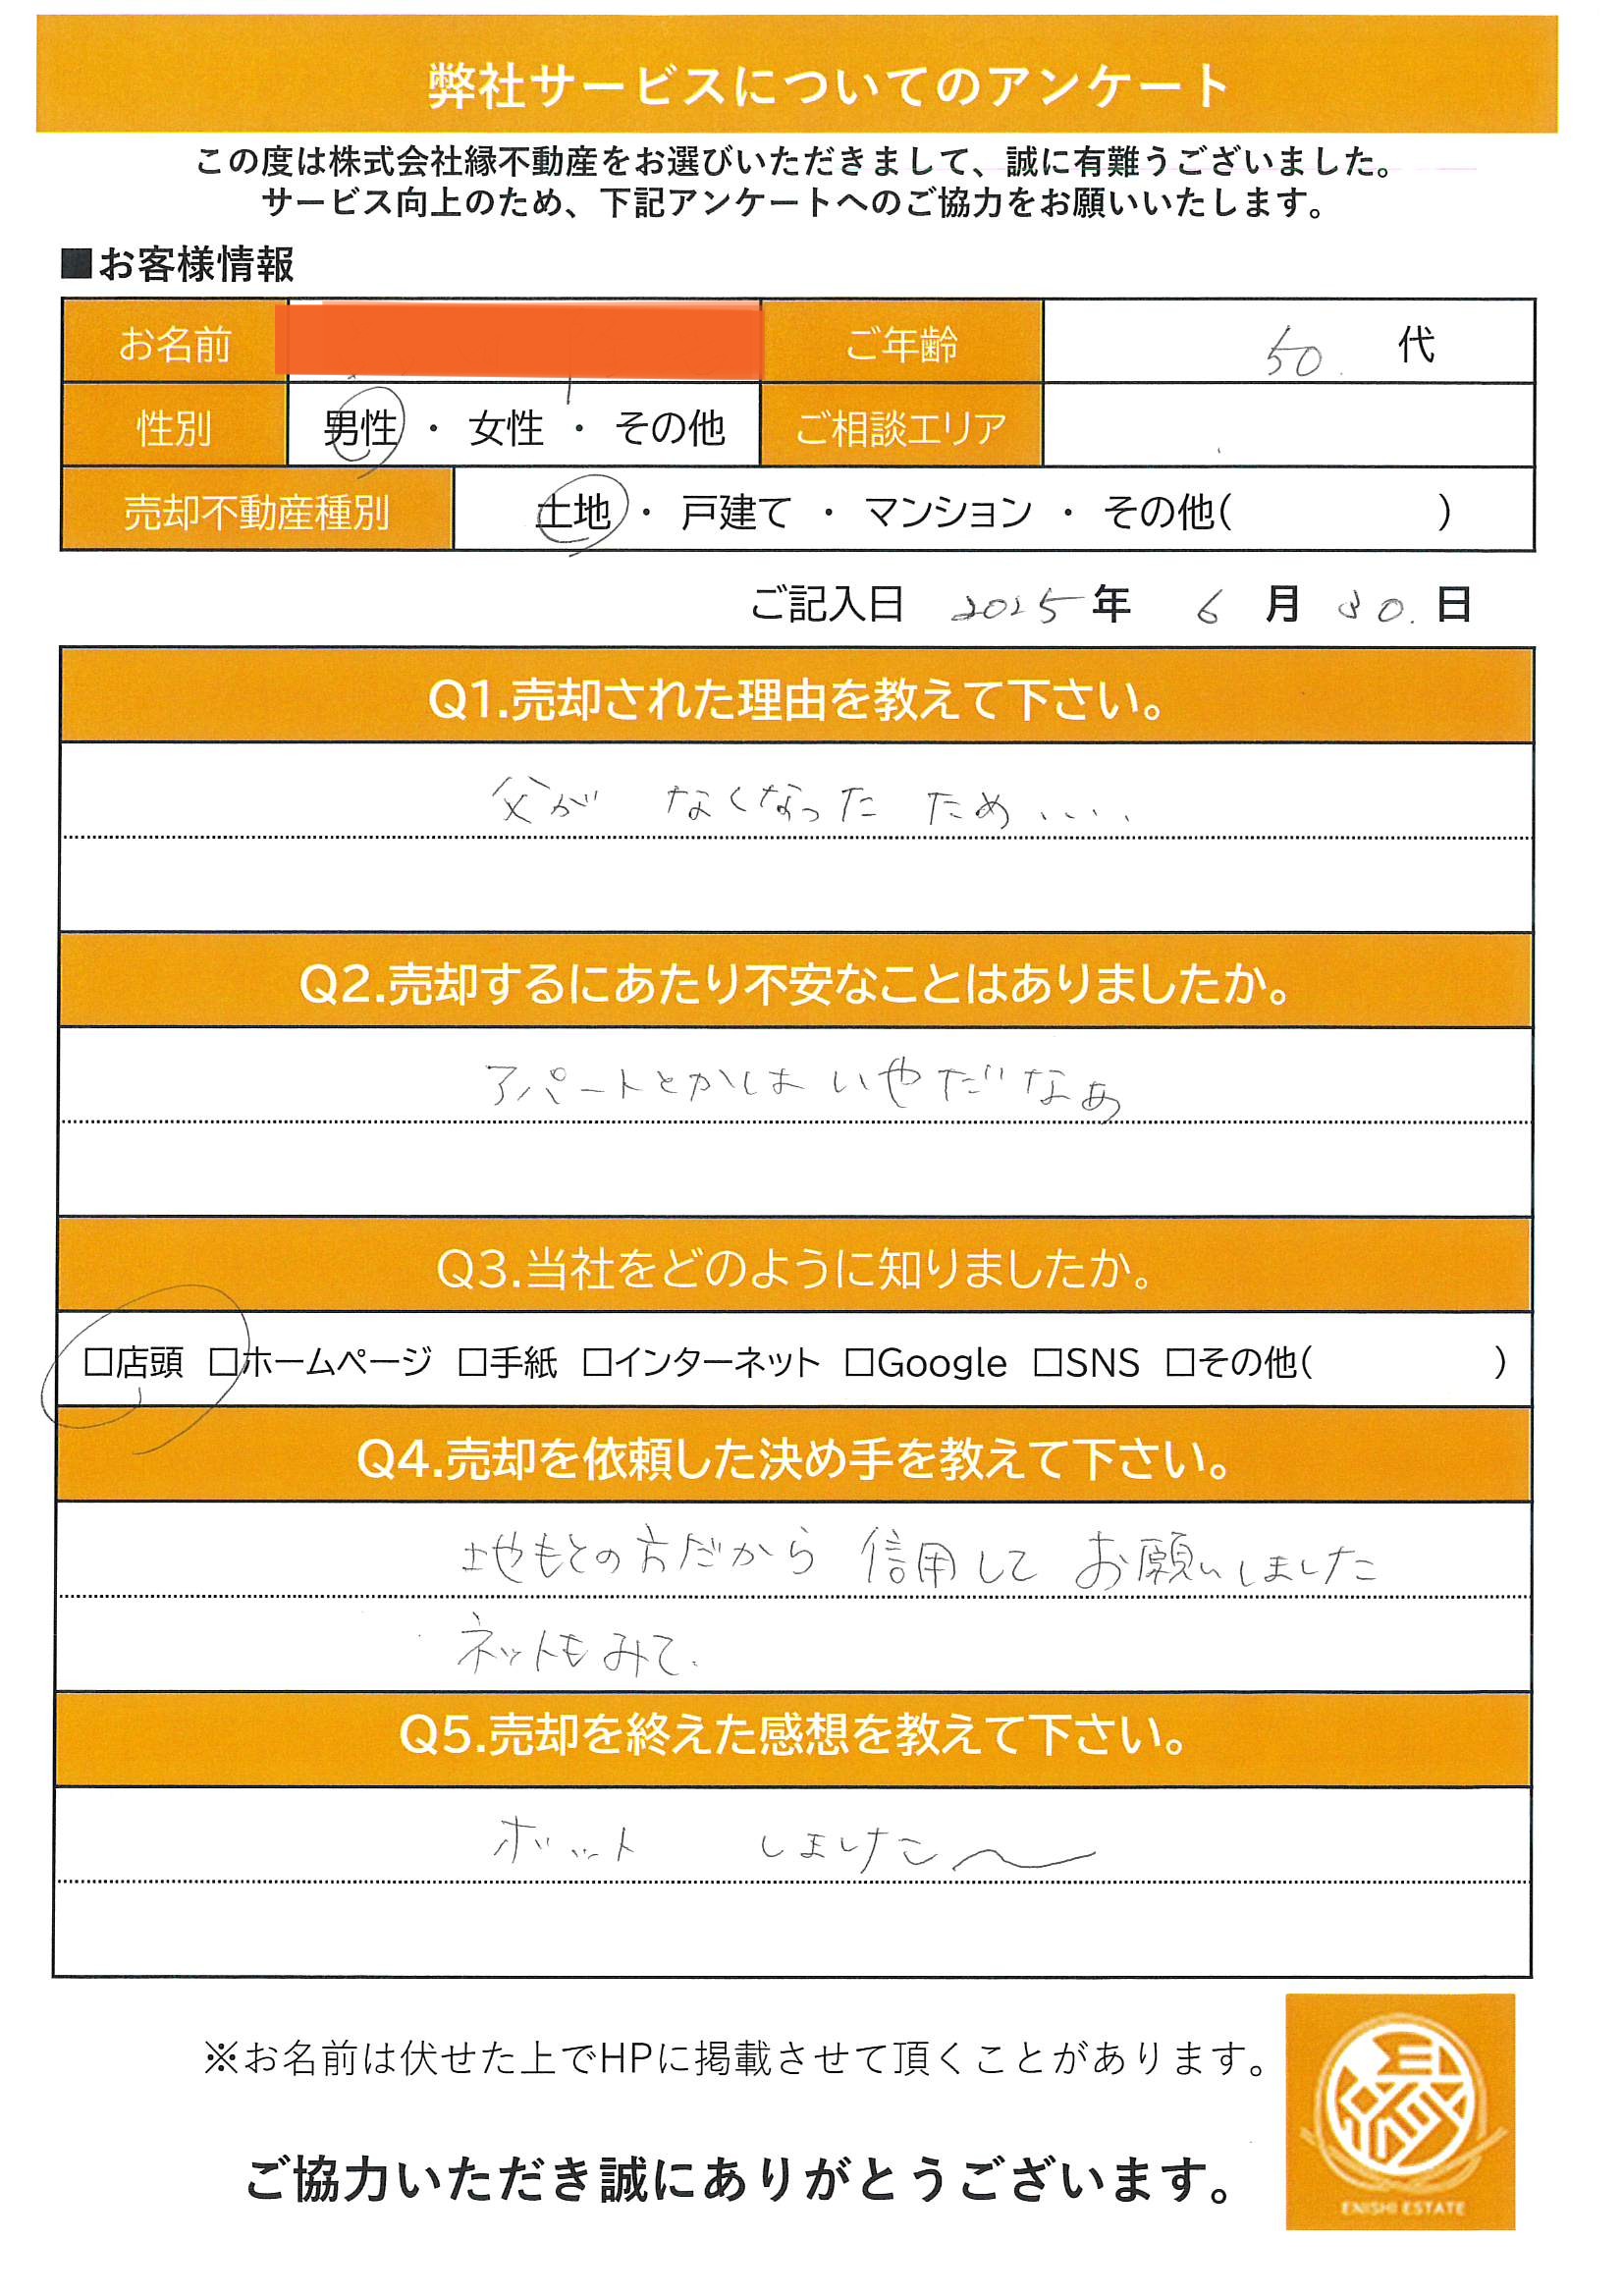 弊社サービスについてのアンケート
この度は株式会社縁不動産をお選びいただきまして、誠に有難うございました。
サービス向上のため、下記アンケートへのご協力をお願いいたします。
■お客様情報
お名前 ご年齢 50. 代
性別 男性 ・ 女性 ・ その他 ご相談エリア
売却不動産種別 土地 ・ 戸建て ・ マンション ・ その他( )
ご記入日 2025 年 6 月 30. 日
Q1.売却された理由を教えて下さい。
父が なくなった ため....
Q2.売却するにあたり不安なことはありましたか。
アパートとかはいやだなぁ
Q3.当社をどのように知りましたか。
□店頭 □ホームページ □手紙 □インターネット □Google □SNS □その他( )
Q4.売却を依頼した決め手を教えて下さい。
土地もとの方だから 信用して お願いしました
ネットもみて.
Q5.売却を終えた感想を教えて下さい。
ホッット しました〜
※お名前は伏せた上でHPに掲載させて頂くことがあります。
ご協力いただき誠にありがとうございます。
縁
ENISHI ESTATE